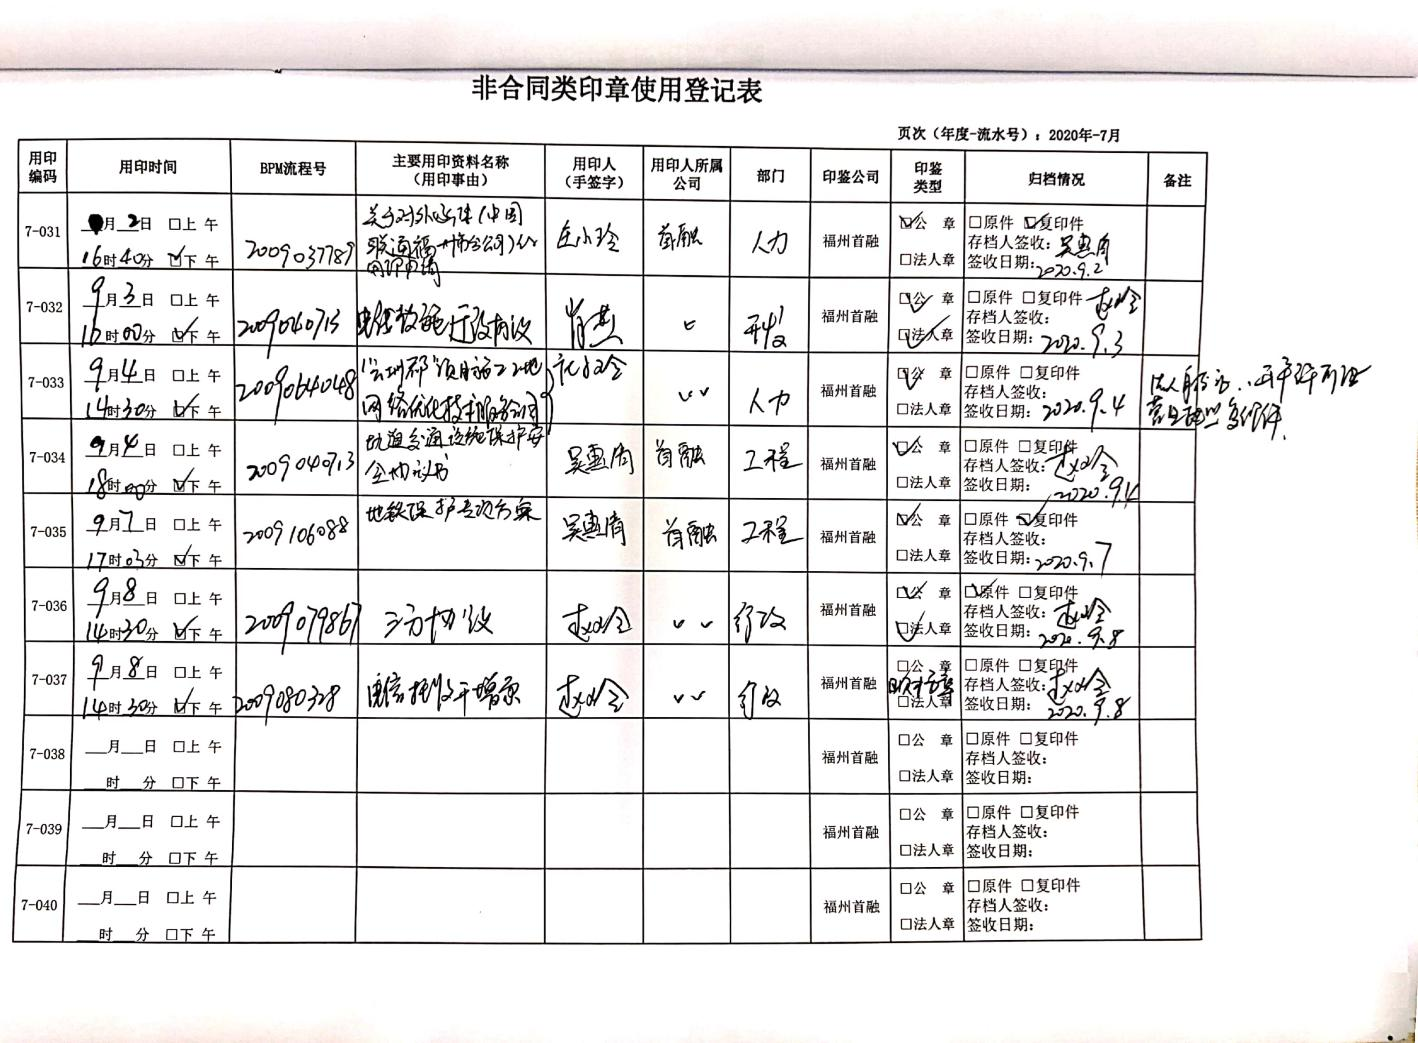 非合同类印章使用登记表
页次（年度-流水号）：2020年-7月
用印编码 用印时间 BPM流程号 主要用印资料名称（用印事由） 用印人（手签字） 用印人所属公司 部门 印鉴公司 印鉴类型 归档情况 备注
7-031 月2日 □上 午 16时40分 ☑下 午 2009037789 首融 人力 福州首融 ☑公 章 □法人章 □原件 ☑复印件 存档人签收：吴惠清 签收日期：2020.9.2
7-032 9月3日 □上 午 16时00分 ☑下 午 2009040713 〃 开发 福州首融 ☑公 章 ☑法人章 □原件 □复印件 存档人签收： 签收日期：2020.9.3
7-033 9月4日 □上 午 14时30分 ☑下 午 2009064048 〃 人力 福州首融 ☑公 章 □法人章 □原件 □复印件 存档人签收： 签收日期：2020.9.4
7-034 9月4日 □上 午 18时00分 ☑下 午 2009040713 轨道交通设施保护安全协议书 吴惠清 首融 工程 福州首融 ☑公 章 □法人章 □原件 □复印件 存档人签收： 签收日期：2020.9.4
7-035 9月7日 □上 午 17时03分 ☑下 午 2009106088 地铁保护专项方案 吴惠清 首融 工程 福州首融 ☑公 章 □法人章 □原件 ☑复印件 存档人签收： 签收日期：2020.9.7
7-036 9月8日 □上 午 14时30分 ☑下 午 2009079867 三方协议 〃 行政 福州首融 ☑公 章 ☑法人章 ☑原件 □复印件 存档人签收： 签收日期：2020.9.8
7-037 9月8日 □上 午 14时30分 ☑下 午 2009080328 〃 行政 福州首融 □公 章 □法人章 □原件 □复印件 存档人签收： 签收日期：2020.9.8
7-038 月 日 □上 午 时 分 □下 午 福州首融 □公 章 □法人章 □原件 □复印件 存档人签收： 签收日期：
7-039 月 日 □上 午 时 分 □下 午 福州首融 □公 章 □法人章 □原件 □复印件 存档人签收： 签收日期：
7-040 月 日 □上 午 时 分 □下 午 福州首融 □公 章 □法人章 □原件 □复印件 存档人签收： 签收日期：